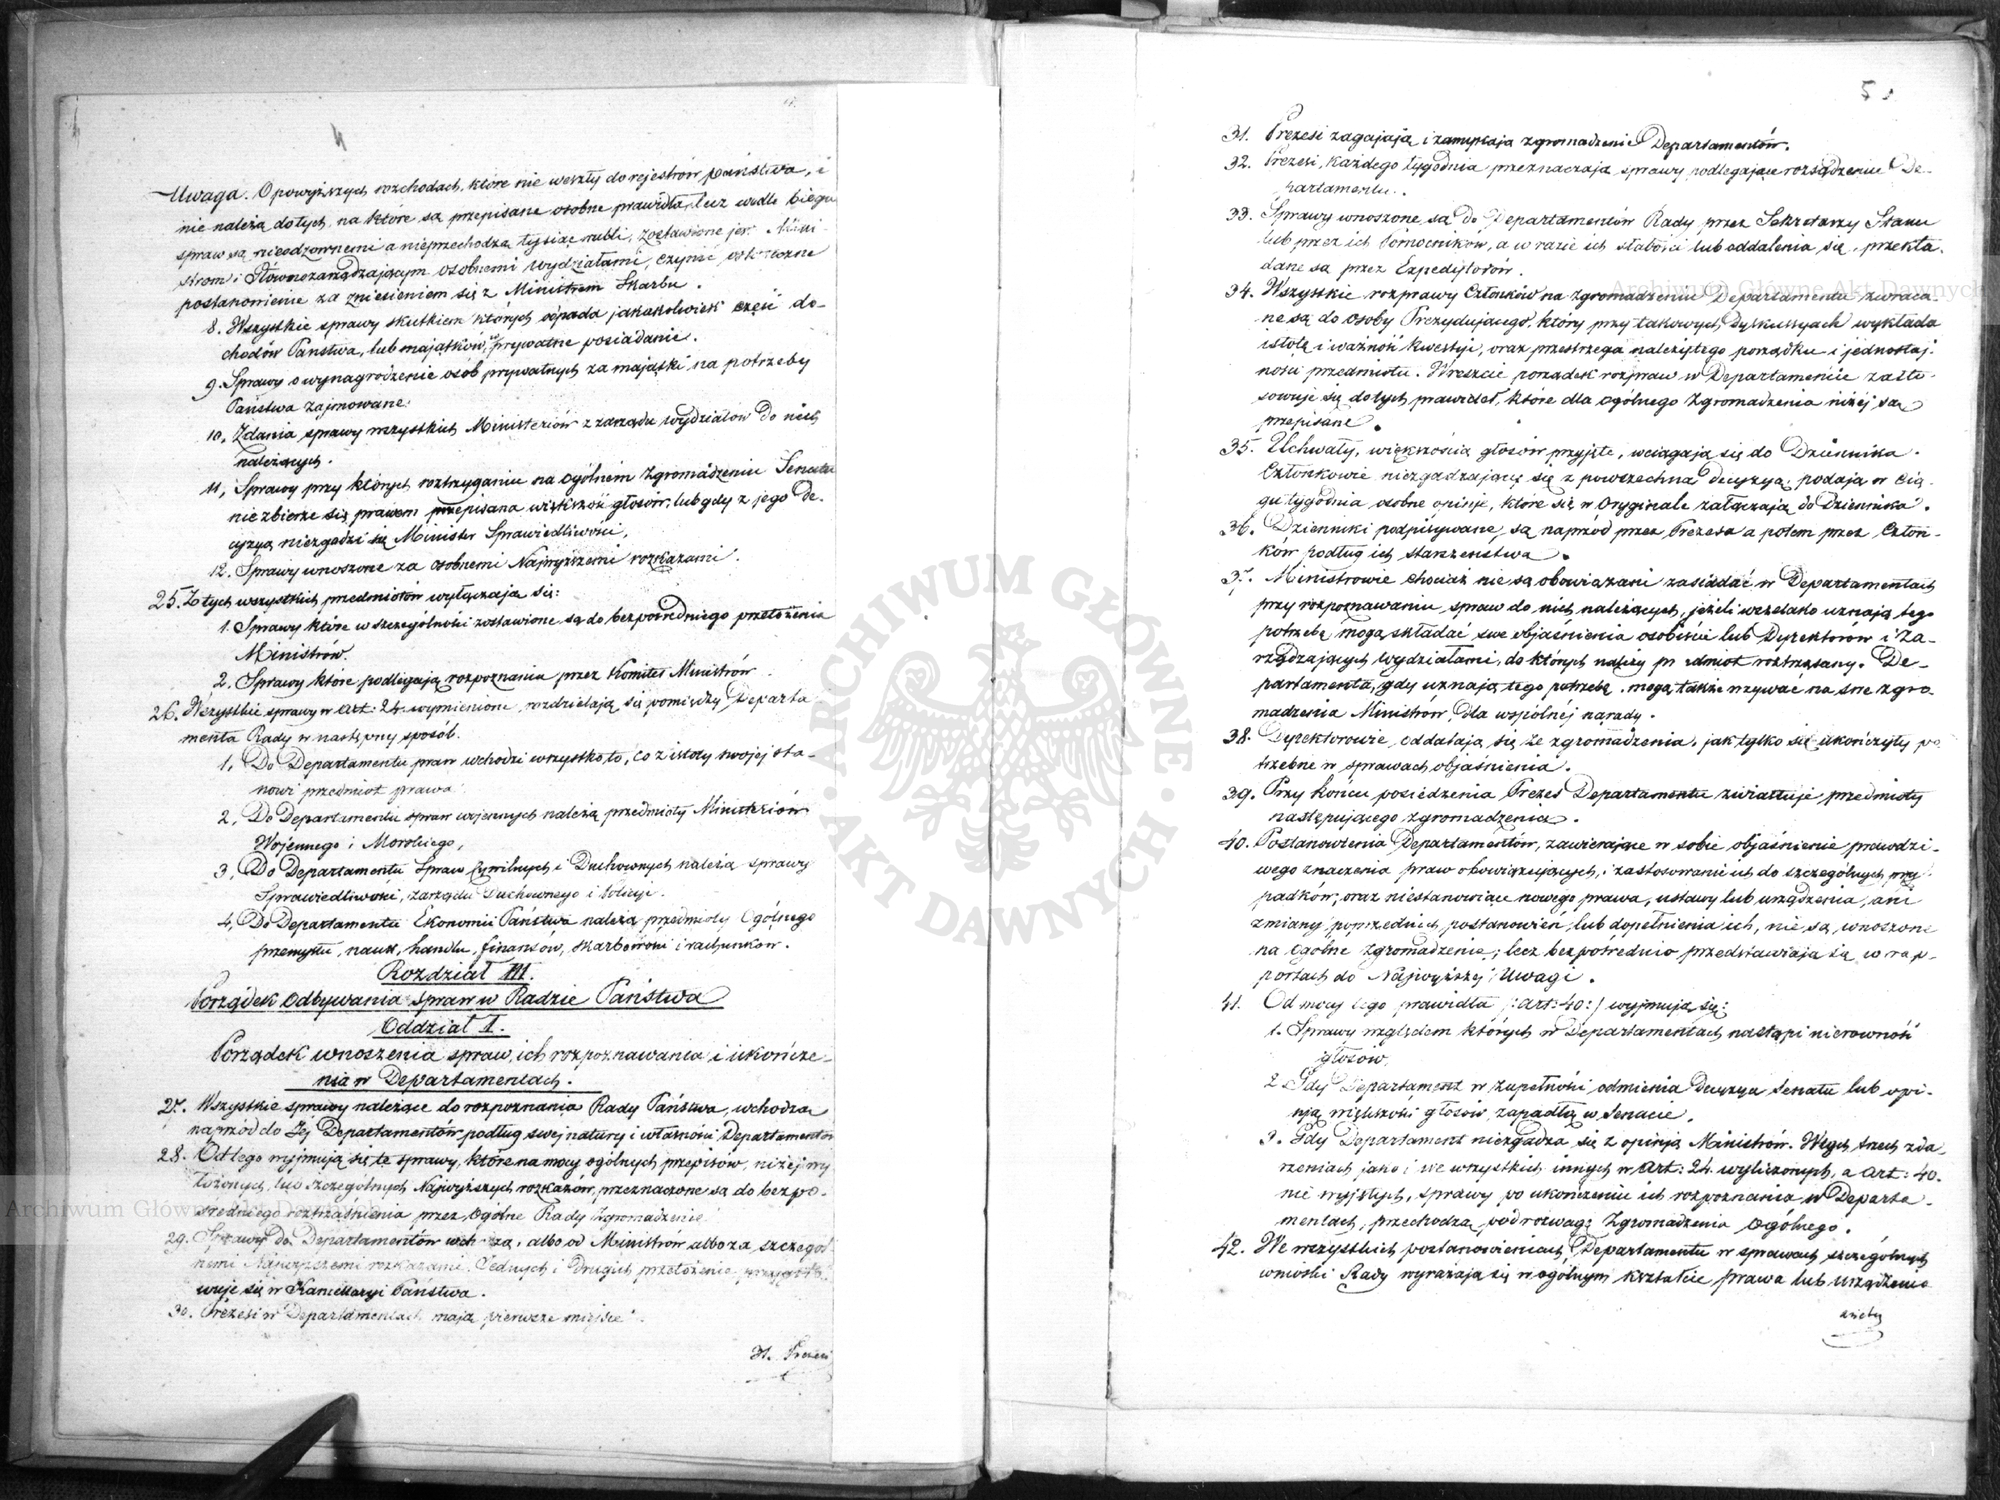 4
Uwaga. O powyższych rozchodach, które nie weszły do rejestrów państwa, i
nie należą do tych, na które są przepisane osobne prawidła, lecz wedle biegu
spraw są nieodzownemi a nieprzechodzą tysiąc rubli, zostawione jest Mini-
strom i Głównozarządzającym osobnemi wydziałami, czynić ostateczne
postanowienie za zniesieniem się z Ministrem Skarbu.
8. Wszystkie sprawy skutkiem których odpada jakakolwiek część do-
chodów Państwa, lub majątków, w prywatne posiadanie.
9. Sprawy o wynagrodzenie osób prywatnych za majątki na potrzeby
Państwa zajmowane.
10, Zdania sprawy wszystkich Ministeriów z zarządu wydziałów do nich
należących.
11, Sprawy przy których roztrzyganiu na ogólném Zgromadzeniu Senatu
nie zbierze się prawem przepisana większość głosów, lub gdy z jego De-
cyzyą niezgadzi się Minister Sprawiedliwości,
12. Sprawy wnoszone za osobnemi Najwyższemi rozkazami.
25. Z tych wszystkich przedmiotów wyłączają się:
1. Sprawy które w szczególności zostawione są do bezpośredniego przełożenia
Ministrów.
2. Sprawy które podlegają rozpoznaniu przez Komitet Ministrów
26. Wszystkie sprawy w art: 24. wymienione, rozdzielają się pomiędzy Departa-
menta Rady w następny sposób.
1, Do Departamentu praw wchodzi wszystko to, co z istoty swojej sta-
nowi przedmiot prawa.
2, Do Departamentu spraw wojennych należą przedmioty Ministeriów
Wojennego i Morskiego,
3, Do Departamentu Spraw Cywilnych i Duchownych należą sprawy
Sprawiedliwości, zarządu Duchownego i Policyi.
4, Do Departamentu Ekonomii Państwa należą przedmioty Ogólnego
przemysłu, nauk, handlu, finansów, skarbowości i rachunków.
Rozdział III.
Porządek odbywania spraw w Radzie Państwa
Oddział I.
Porządek wnoszenia spraw, ich rozpoznawania i ukończe-
nia w Departamentach.
27. Wszystkie sprawy należące do rozpoznania Rady Państwa, wchodzą
naprzód do Jéj Departamentów podług swej natury i własności Departamentów
28. Od tego wyjmują się te sprawy, które na mocy ogólnych przepisów, niżéj wy
łożonych, lub szczególnych Najwyższych rozkazów, przeznaczone są do bezpo-
średniego roztrząśnienia przez Ogólne Rady Zgromadzenie.
29. Sprawy do Departamentów wchodzą, albo od Ministrów albo za szczegól-
nemi Najwyższemi rozkazami. Jednych i drugich przełożenie przygoto-
wuje się w Kancellaryi Państwa.
30. Prezesi w Departamentach mają pierwsze miejsce.
31. Prezesi
5
31. Prezesi zagajają i zamykają zgromadzenie Departamentów.
32. Prezesi, każdego tygodnia przeznaczają sprawy podlegające rozsądzeniu De-
partamentu.
33. Sprawy wnoszone są do Departamentów Rady przez Sekretarzy Stanu
lub przez ich Pomocników, a w razie ich słabości lub oddalenia się, przekła-
dane są przez Expedytorów.
34. Wszystkie rozprawy Członków na Zgromadzeniu Departamentu zwraca-
ne są do osoby Prezydującego, który przy takowych Dyskussyach wykłada
istotę i ważność kwestyi, oraz przestrzega należytego porządku i jednostaj-
ności przedmiotu. Wreszcie porządek rozpraw w Departamencie zasto-
sowuje się do tych prawideł, które dla ogólnego Zgromadzenia niżéj są
przepisane.
35. Uchwały, większością głosów przyjęte, wciągają się do Dziennika.
Członkowie niezgadzający się z powszechną decyzyą, podają w cią-
gu tygodnia osobne opinje, które się w Oryginale załączają do Dziennika.
36. Dzienniki podpisywane są naprzód przez Prezesa a potem przez Człon-
ków podług ich starszeństwa.
37. Ministrowie chociaż nie są obowiązani zasiadać w Departamentach
przy rozpoznawaniu spraw do nich należących, jeżeli wszelako uznają tego
potrzebę mogą składać swe objaśnienia osobiście lub Dyrektorów i Za-
rządzających wydziałami, do których należy przedmiot roztrząsany. De-
partamenta, gdy uznają tego potrzebę, mogą także wzywać na swe zgro-
madzenia Ministrów, dla wspólnéj narady.
38. Dyrektorowie, oddalają się ze zgromadzenia, jak tylko się ukończyły po-
trzebne w sprawach objaśnienia.
39. Przy końcu posiedzenia Prezes Departamentu zwiastuje przedmioty
następującego zgromadzenia.
40. Postanowienia Departamentów, zawierające w sobie objaśnienie prawdzi-
wego znaczenia praw obowiązujących, i zastosowanie ich do szczególnych przy-
padków, oraz niestanowiące nowego prawa, ustawy lub urządzenia, ani
zmiany poprzednich postanowień, lub dopełnienia ich, nie są wnoszone
na Ogólne Zgromadzenie; lecz bezpośrednio przedstawiają się w rap-
portach do Najwyższej Uwagi.
41. Od mocy tego prawidła /:art: 40:/ wyjmują się:
1. Sprawy względem których w Departamentach nastąpi nierówność
głosów,
2. Gdy Departament w zupełności odmienia Decyzyą Senatu lub opi-
nją większości głosów, zapadłą w Senacie,
3. Gdy Departament niezgadza się z opinją Ministrów. W tych trzech zda-
rzeniach jako i we wszystkich innych w art: 24. wyliczonych, a art: 40.
nie wyjętych, sprawy po ukończeniu ich rozpoznania w Departa-
mentach, przechodzą pod rozwagę Zgromadzenia Ogólnego.
42. We wszystkich postanowieniach Departamentu w sprawach szczególnych
wnioski Rady wyrażają się w ogólnym kształcie prawa lub urządzenia
ażeby
ARCHIWUM GŁÓWNE AKT DAWNYCH
Archiwum Główne Akt Dawnych
Archiwum Główne Akt Dawnych